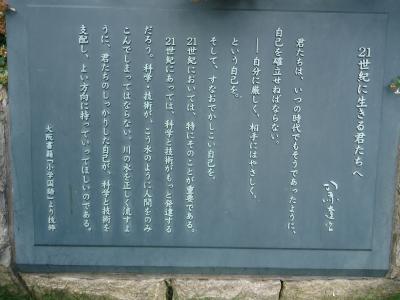 21世紀に生きる君たちへ
司馬遼太郎
君たちは、いつの時代でもそうであったように、
自己を確立せねばならない。
――自分に厳しく、相手にはやさしく、
という自己を。
そして、すなおでかしこい自己を。
21世紀においては、特にそのことが重要である。
21世紀にあっては、科学と技術がもっと発達する
だろう。科学・技術が、こう水のように人間をのみ
こんでしまってはならない。川の水を正しく流すよ
うに、君たちのしっかりした自己が、科学と技術を
支配し、よい方向に持っていってほしいのである。
大阪書籍「小学国語」より抜粋